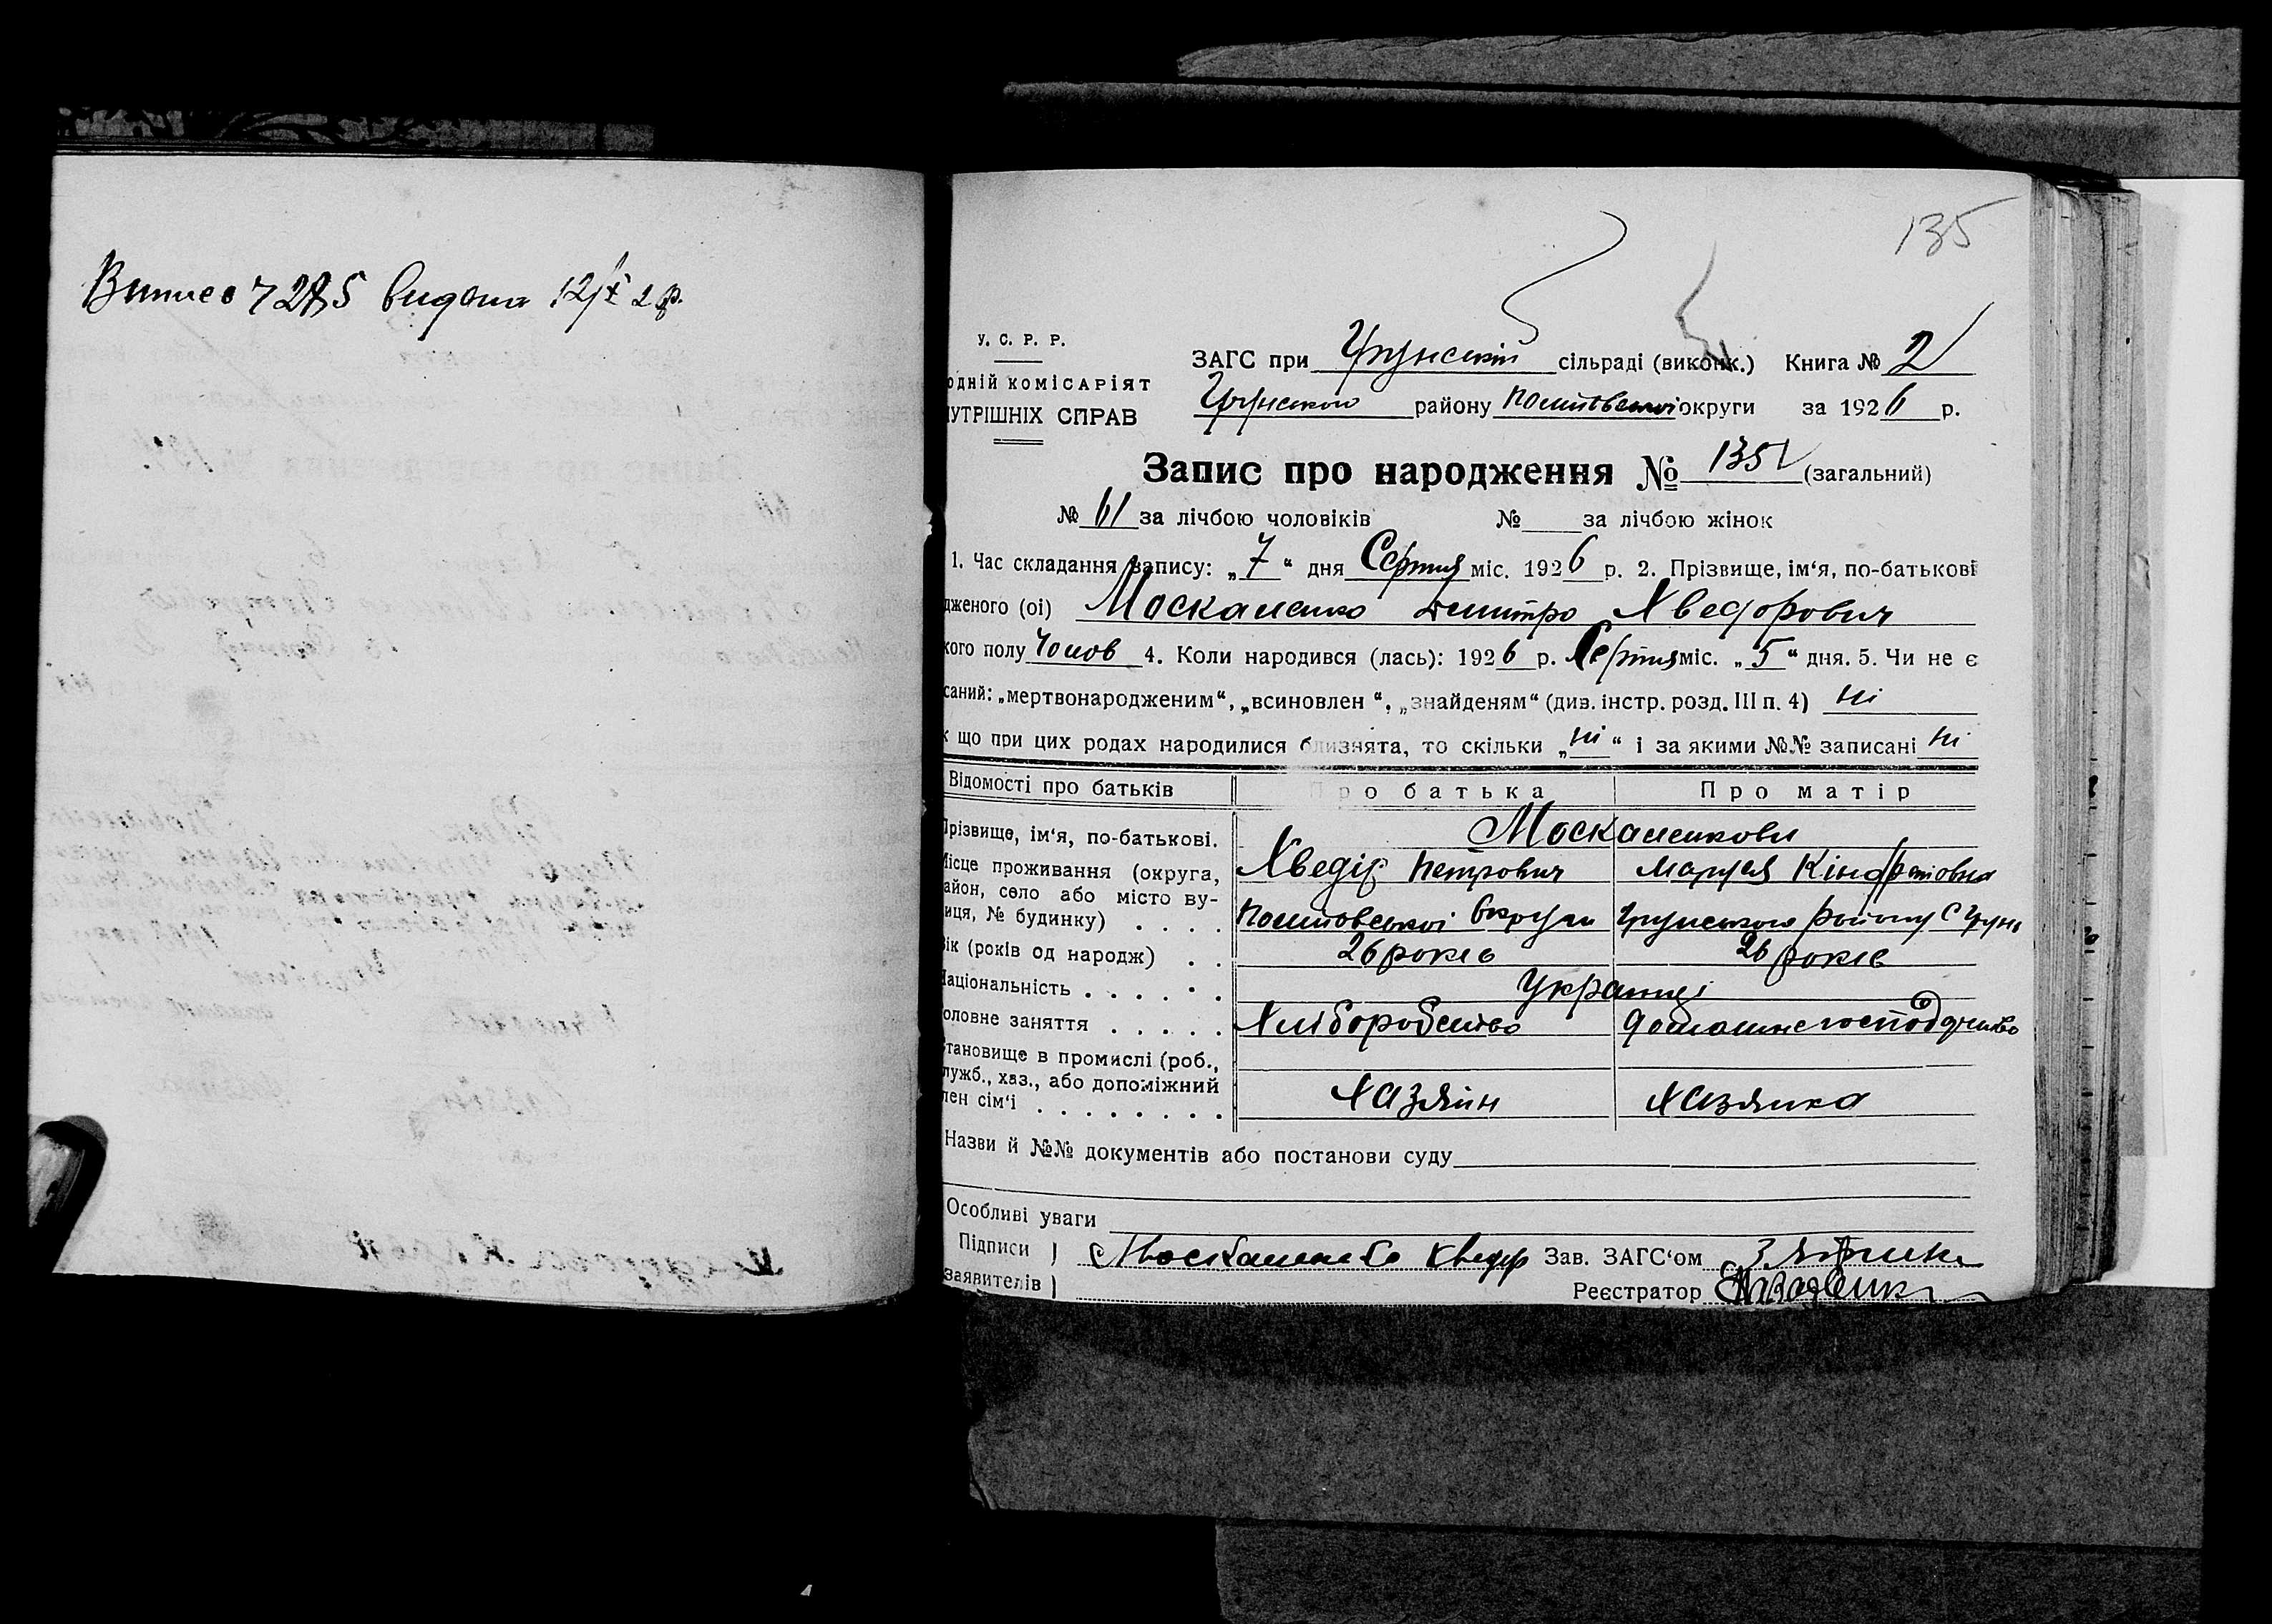 видана 12/X 2 р.
135
У. С. Р. Р.
ЗАГС при Грунській сільраді (виконк.) Книга № 2
одній комісаріят
Грунського району Полтавської округи за 1926 р.
УТРІШНІХ СПРАВ
Запис про народження № 135 (загальний)
№ 61 за лічбою чоловіків № за лічбою жінок
1. Час складання запису: „7“ дня Серпня міс. 1926 р. 2. Прізвище, ім‘я, по-батькові
дженого (ої) Москаленко Дмитро Хведорович
кого полу Чолов 4. Коли народився (лась): 1926 р. Серпня міс. „5“ дня. 5. Чи не є
саний: „мертвонародженим“, „всиновлен “, „знайденям“ (див. інстр. розд. III п. 4) ні
к що при цих родах народилися близнята, то скільки „ні“ і за якими №№ записані ні
Відомості про батьків Про батька Про матір
Прізвище, ім‘я, по-батькові. Москаленкови
Місце проживання (округа, Хведір Петрович Марія
айон, село або місто ву-
иця, № будинку) . . . . Полтавської Округи Грунського району с Грунь
ік (років од народж) . . 26 років 26 років
Національність . . . . . . Українці
оловне заняття . . . . . Хліборобство домашне господарство
тановище в промислі (роб.,
лужб., хаз., або допоміжний
лен сім‘ї . . . . . . . . Хазяїн Хазяйка
Назви й №№ документів або постанови суду
Особливі уваги
Підписи ) Москаленко Хведір Зав. ЗАГС‘ом
заявителів ) Реєстратор